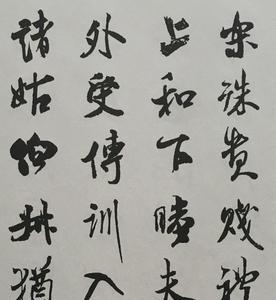 樂殊貴賤禮
上和下睦夫
外受傅訓入
諸姑伯叔猶